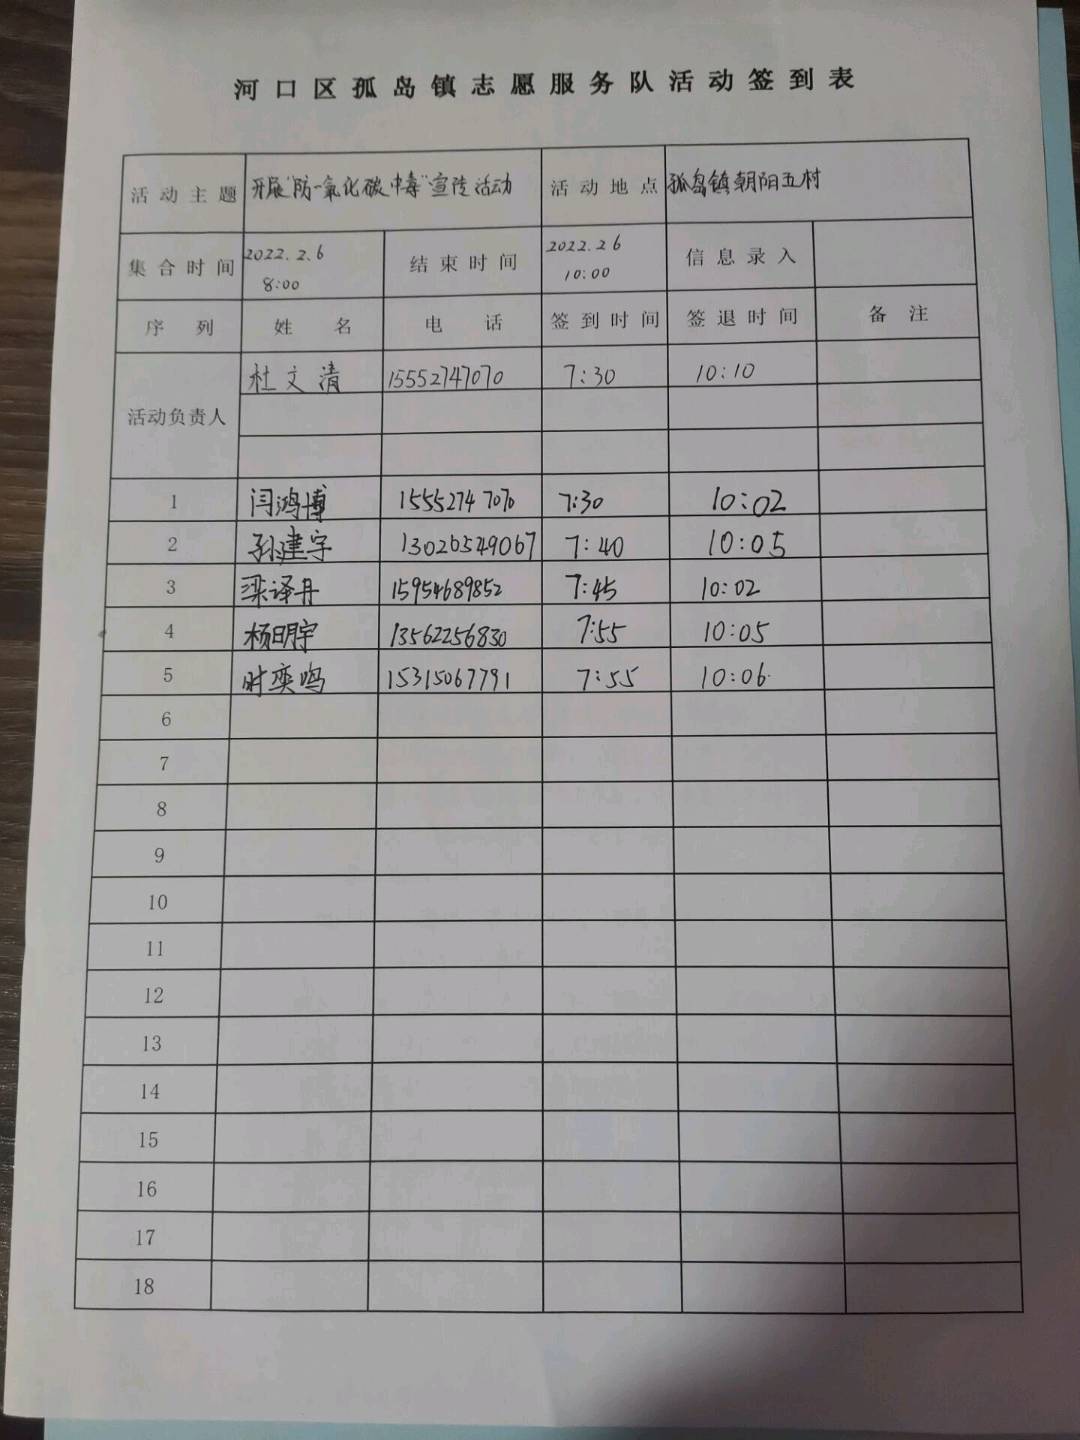 河口区孤岛镇志愿服务队活动签到表
活动主题 开展"防一氧化碳中毒"宣传活动 活动地点 孤岛镇朝阳五村
集合时间 2022.2.6 8:00 结束时间 2022.2.6 10:00 信息录入
序列 姓名 电话 签到时间 签退时间 备注
活动负责人 杜文清 15552747070 7:30 10:10
1 闫鸿博 15552747070 7:30 10:02
2 孙建宇 13026549067 7:40 10:05
3 梁译丹 15954689852 7:45 10:02
4 杨明宇 13562256830 7:55 10:05
5 时奕鸣 15315067791 7:55 10:06
6
7
8
9
10
11
12
13
14
15
16
17
18